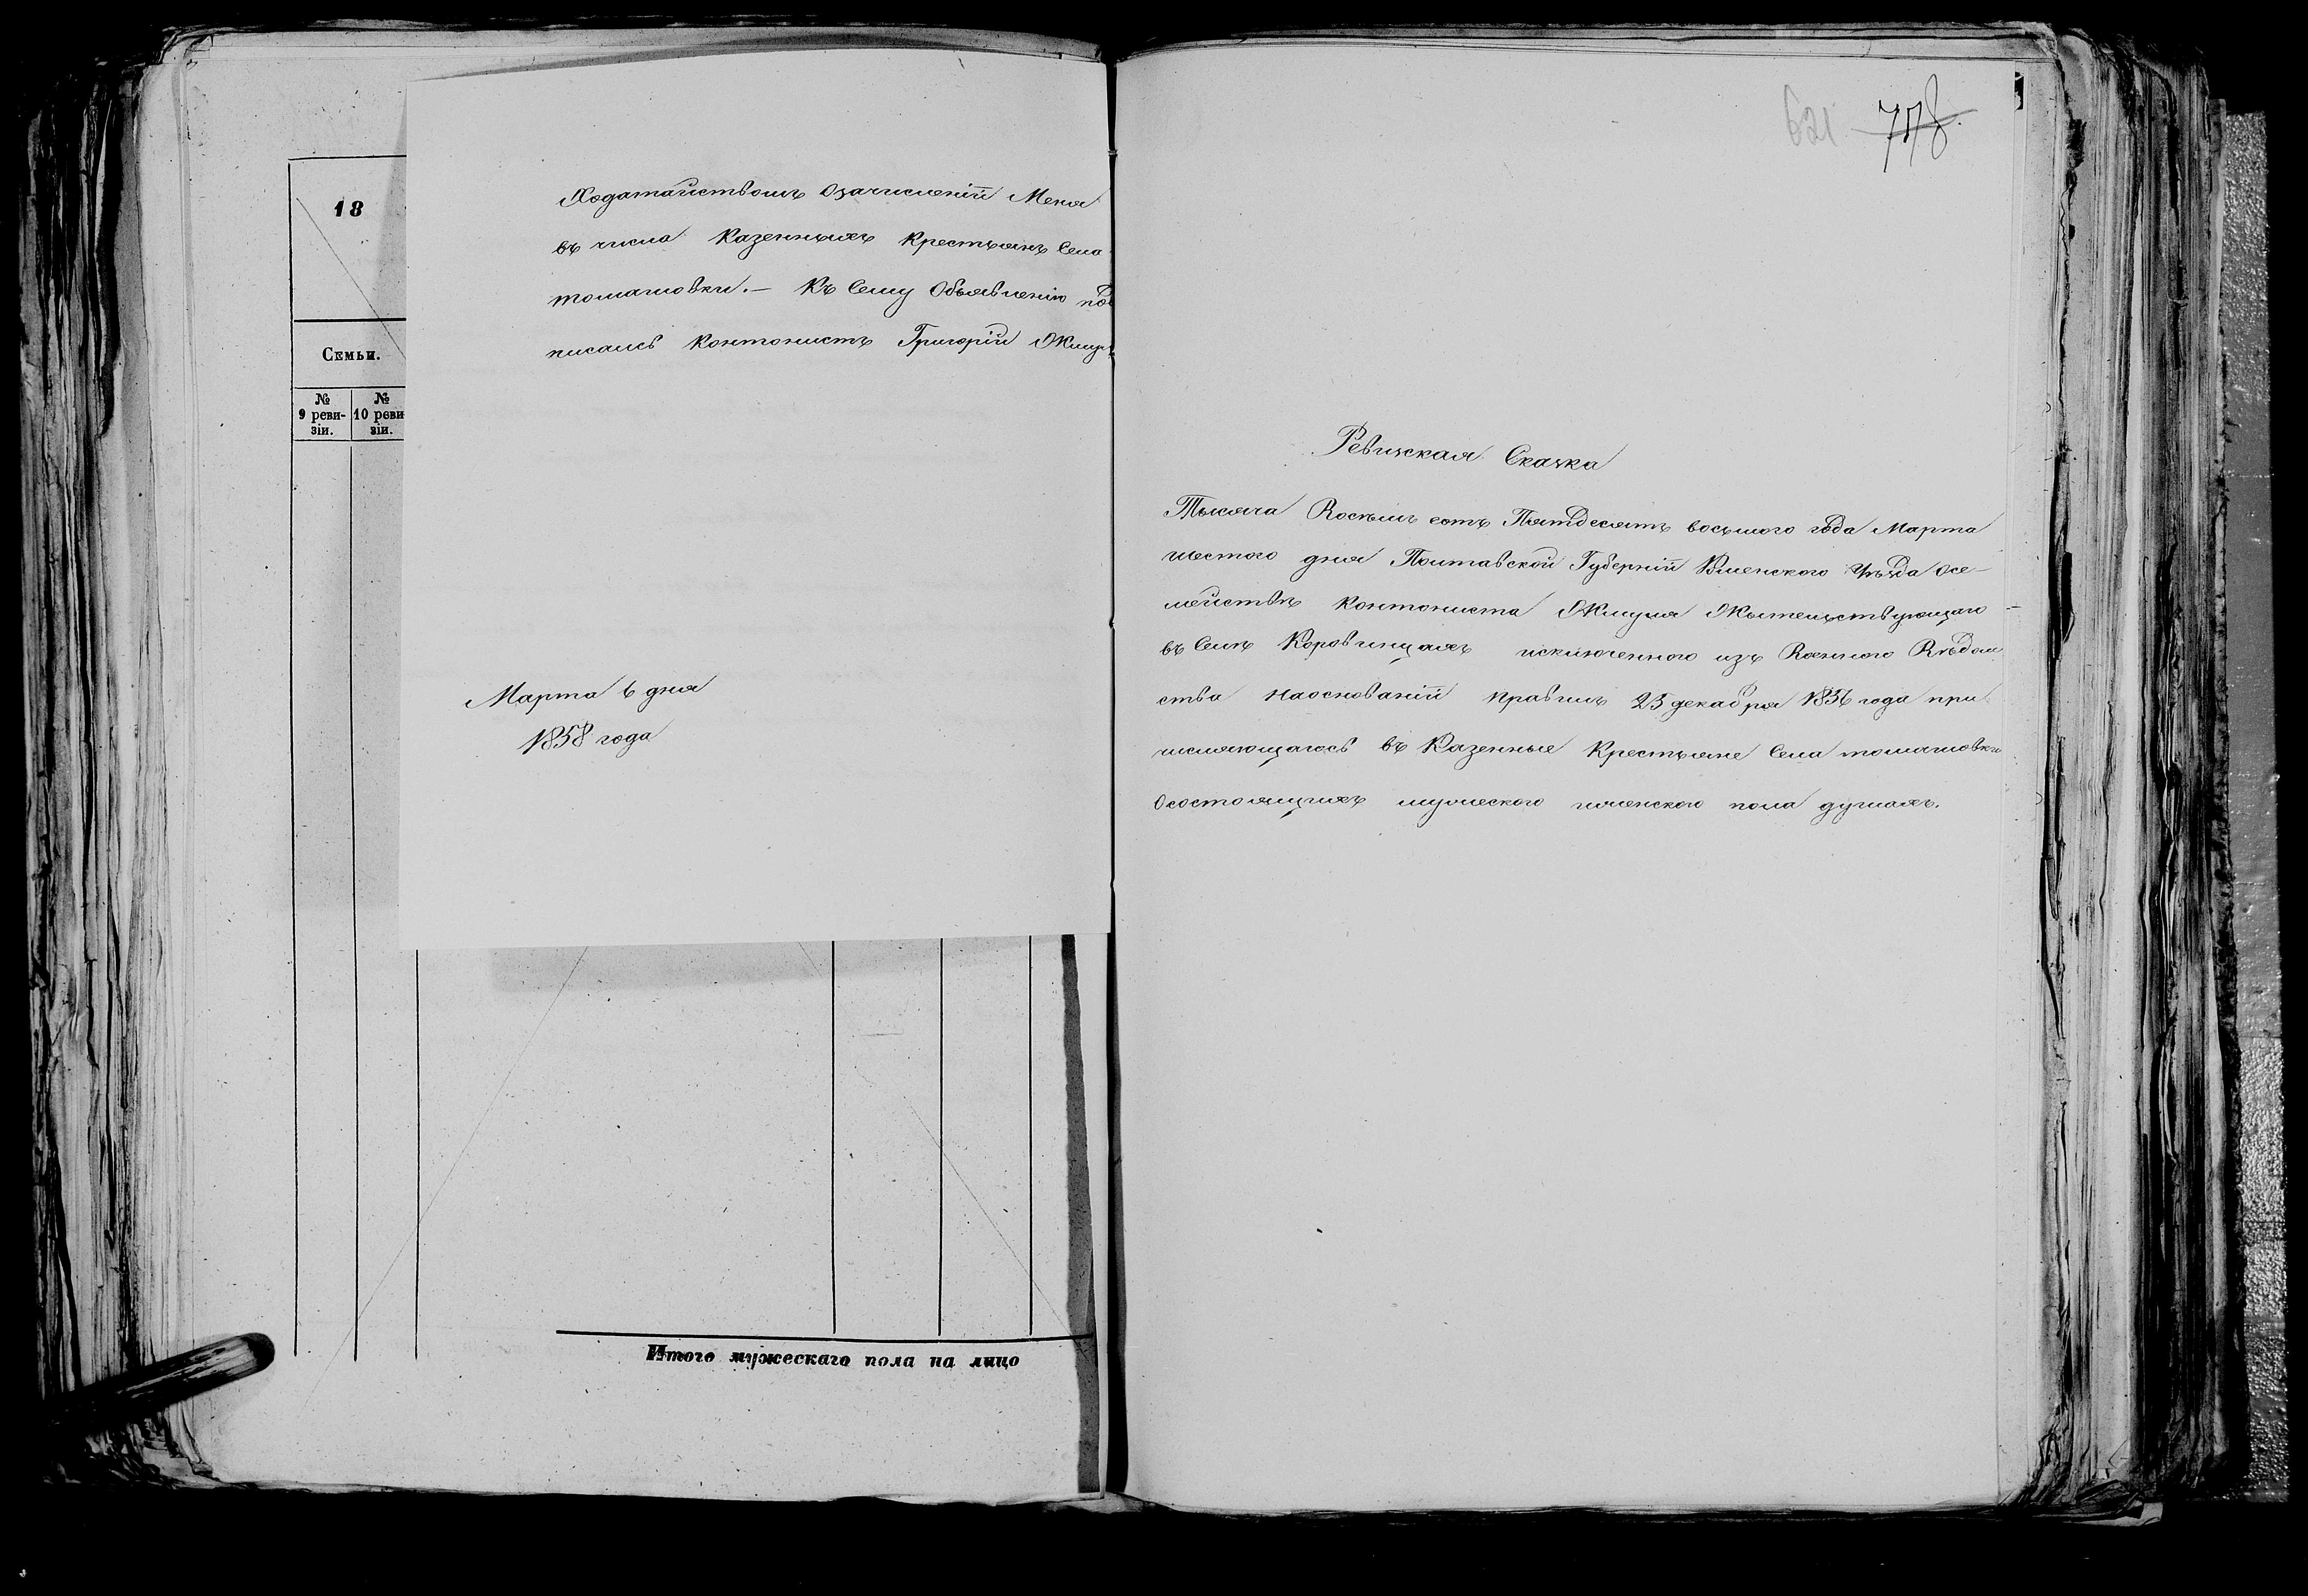 18
Семьи.
№ 9 реви-зіи.
№ 10 реви зіи.
Ходатайствомъ Озачисленій Меня
въ числа Казенныхъ Крестьянъ Села
томашовки.— Къ Сему Объявленію под
писалсь контонистъ Григорій Жмур
Марта 6 дня
1858 года
Итого мужескаго пола на лицо
621 778
Ревизская Сказка
Тысяча Восемь сотъ Пятдесятъ восьмого года Марта
шестого дня Полтавской Губерній Роменского Уѣзда Осе-
мействѣ контониста Жмуря Жытельствующаго
въ Селѣ Коровинцахъ исключенного изъ Военного Вѣдом
ства Наоснованій правилъ 25 декабря 1856 года при
числяющагось въ Казенные Крестьяне Села томашовки
Осостоящихъ мужеского иженского пола душахъ.